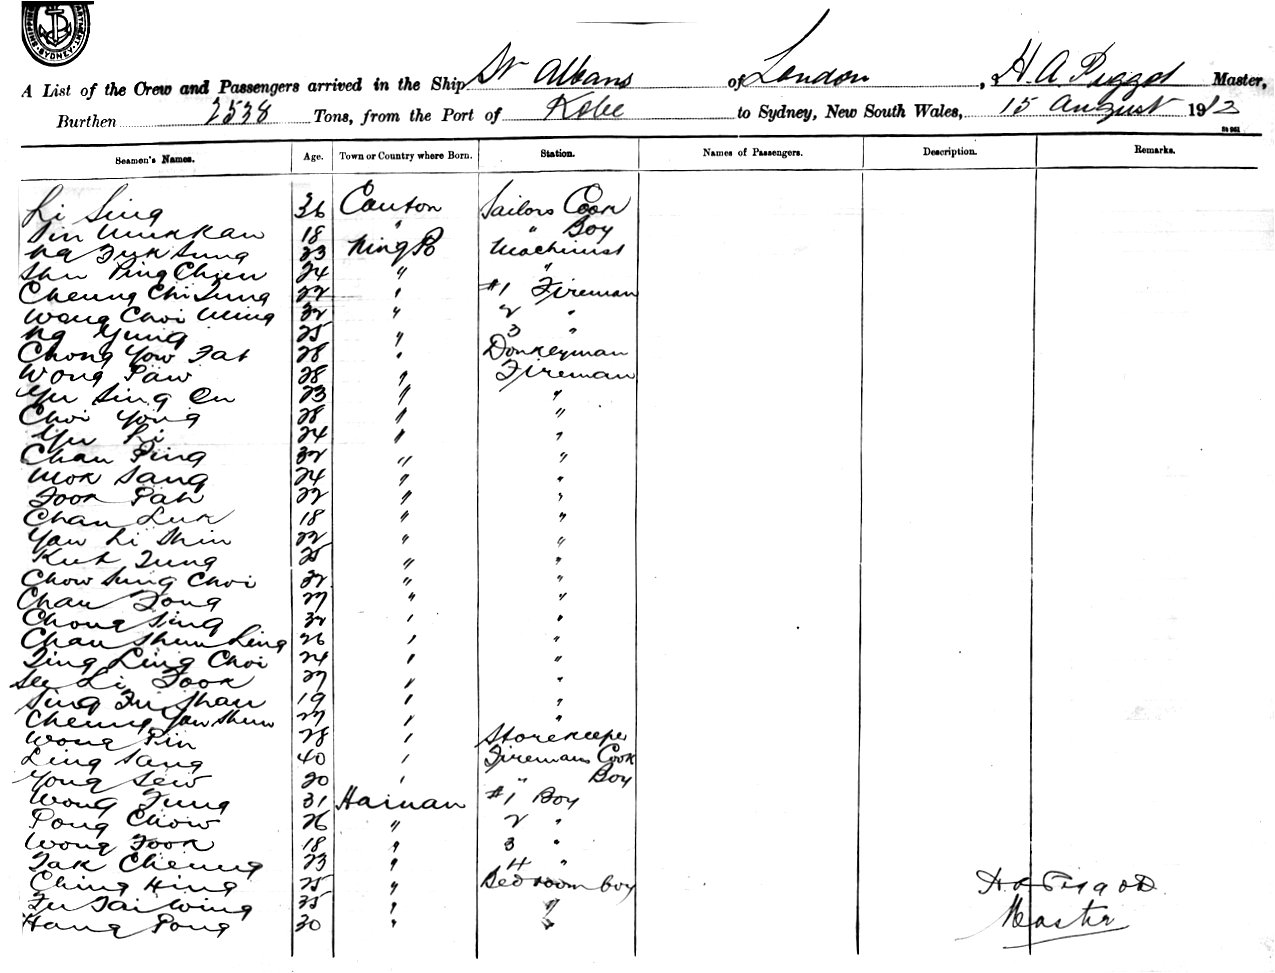 DEPARTMENT
SHIPPING
SYDNEY
A List of the Crew and Passengers arrived in the Ship St Albans of London, H. A. Piggot Master,
Burthen 2538 Tons, from the Port of Kobe to Sydney, New South Wales, 15 August 1912
Seamen's Names. Age. Town or Country where Born. Station. Names of Passengers. Description. Remarks.
Li Sing 36 Canton Sailors Cook
Sin Munkkan 18 " " Boy
Ng Fuk Sung 23 Ning Po Machinist
Shu Ping Chuen 24 " "
Cheung Chi Tung 22 " #1 Fireman
Wong Choi Ming 32 " 2 "
Ng Yung 25 " 3 "
Chong Yow Fat 28 " Donkeyman
Wong Paw 28 " Fireman
Yu Sing On 23 " "
Choi Yong 28 " "
Yu Li 24 " "
Chan Ping 32 " "
Mok Sang 24 " "
Fook Pah 22 " "
Chan Luk 18 " "
Yau Li Shin 22 " "
Kut Tung 25 " "
Chow Sung Choi 32 " "
Chan Fong 27 " "
Chong Sing 32 " "
Chan Shun Ling 26 " "
Ting Ling Choi 24 " "
See Li Fook 27 " "
Sing Fu Shan 19 " "
Cheung Yau Shun 27 " "
Wong Pin 28 " Storekeeper
Ling Sang 40 " Firemans Cook
Yong Sew 20 " " Boy
Wong Tung 31 Hainan #1 Boy
Pong Chow 26 " 2 "
Wong Fook 18 " 3 "
Tak Cheung 23 " 4 "
Ching Hing 25 " Bedroom boy
Fu Tai Wing 35 " "
Hang Pong 30 " "
H A Piggot
Master